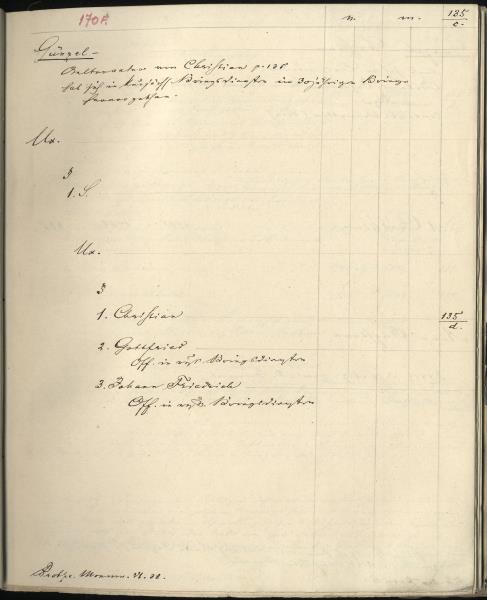 170 f.
n. m. 135
c.
Günzel.
Aeltervater von Christian p. 135
hat sich in Kursächs. Kriegsdienste im 30jährigen Kriege
hervorgethan.
Ux.
§
1. S.
Ux.
§
1. Christian 135
d.
2. Gottfried
Off. in russ. Kriegsdiensten
3. Johann Friedrich
Off. in russ. Kriegsdiensten
Brotze. Monum. VI. 90.